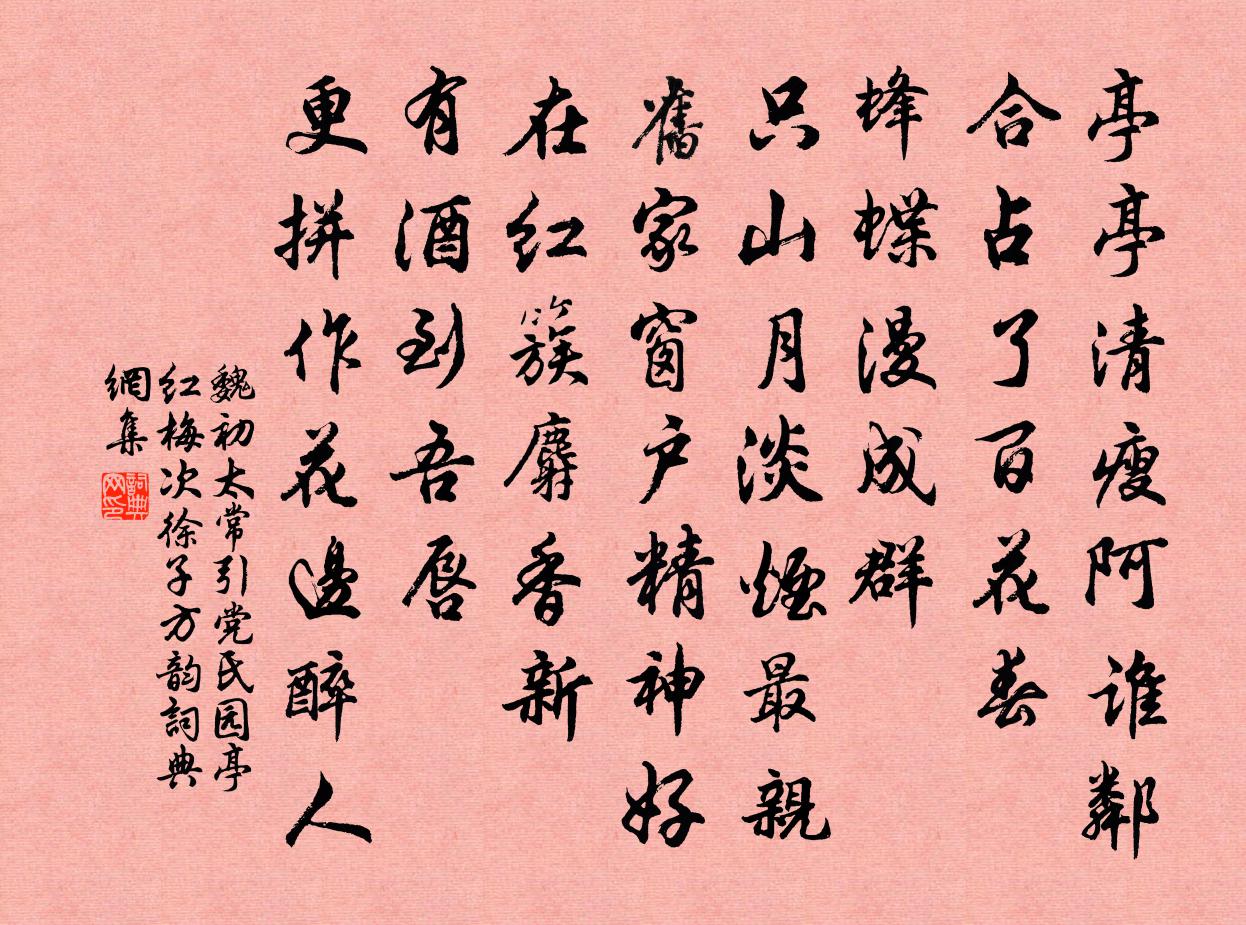 亭亭清瘦阿谁鄰
合占了百花春
蜂蝶漫成群
只山月淡煙最親
舊家窗户精神好
在红簇麝香新
有酒到吾唇
更拼作花邊醉人
魏初太常引党氏园亭
红梅次徐子方韵詞典
網集
詞典网印